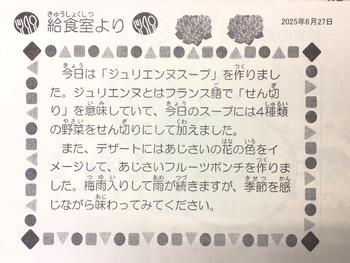 きゅうしょくしつ
給食室より
2025年6月27日
きょう つく
今日は「ジュリエンヌスープ」を作りまし
ご ぎ
た。ジュリエンヌとはフランス語で「せん切
いみ きょう しゅるい
り」を意味していて、今日のスープには4種類
やさい ぎ くわ
の野菜をせん切りにして加えました。
はな いろ
また、デザートにはあじさいの花の色をイ
つく
メージして、あじさいフルーツポンチを作りま
つゆい あめ つづ きせつ かん
した。梅雨入りして雨が続きますが、季節を感
あじ
じながら味わってみてください。